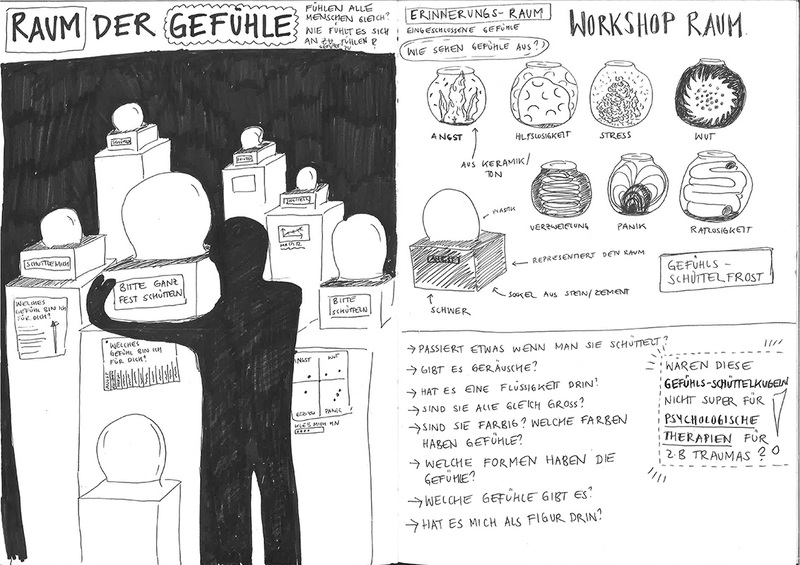 RAUM DER GEFÜHLE
FÜHLEN ALLE
MENSCHEN GLEICH?
WIE FÜHLT ES SICH
AN ZU FÜHLEN?
SCHÜTTLE MICH
BITTE GANZ
FEST SCHÜTTELN
BITTE
SCHÜTTELN
WELCHES
GEFÜHL BIN ICH
FÜR DICH?
WELCHES
GEFÜHL BIN ICH
FÜR DICH?
ANGST WUT
PANIC
ERINNERUNGS-RAUM
EINGESCHLOSSENE GEFÜHLE
WIE SEHEN GEFÜHLE AUS?
WORKSHOP RAUM
ANGST
HLFLSLOSIGKEIT
STRESS
WUT
AUS KERAMIK/
TON
VERZWEIFLUNG
PANIK
RATLOSIGKEIT
PLASTIK
REPRESENTIERT DEN RAUM
SOCKEL AUS STEIN/ZEMENT
SCHWER
GEFÜHLS-
SCHÜTTELFROST
→ PASSIERT ETWAS WENN MAN SIE SCHÜTTELT?
→ GIBT ES GERÄUSCHE?
→ HAT ES EINE FLÜSSIGKEIT DRIN?
→ SIND SIE ALLE GLEICH GROSS?
→ SIND SIE FARBIG? WELCHE FARBEN
HABEN GEFÜHLE?
→ WELCHE FORMEN HABEN DIE
GEFÜHLE?
→ WELCHE GEFÜHLE GIBT ES?
→ HAT ES MICH ALS FIGUR DRIN?
WÄREN DIESE
GEFÜHLS-SCHÜTTELKUGELN
NICHT SUPER FÜR
PSYCHOLOGISCHE
THERAPIEN FÜR
Z.B TRAUMAS?!